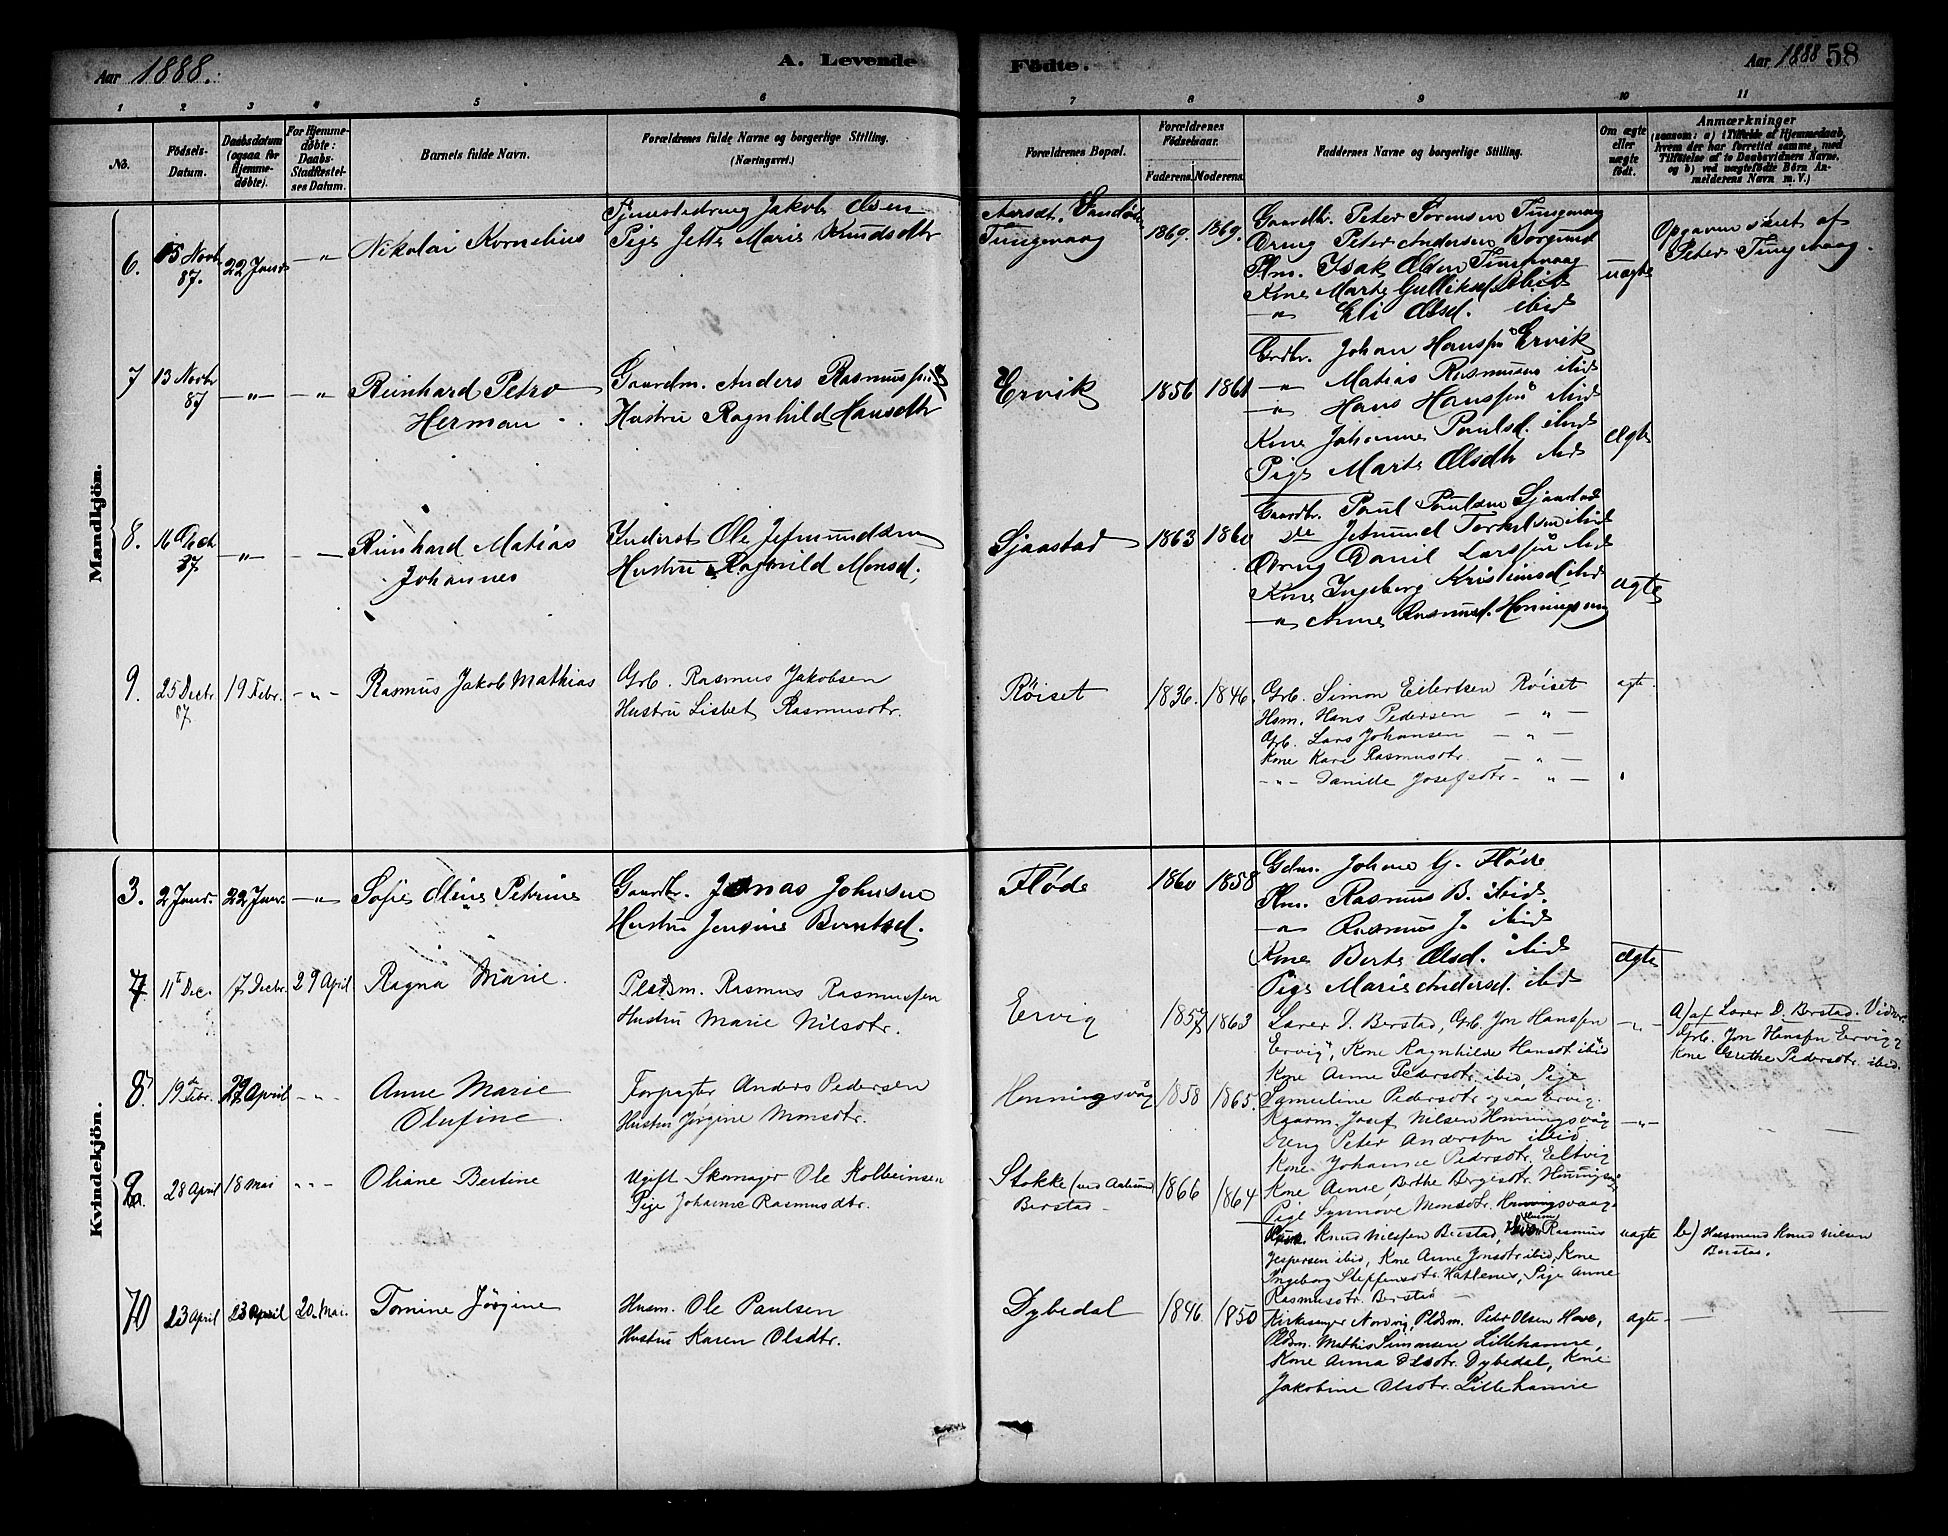 Aar 1888.
A. Levende
Fødte.
Aar 1888 58
1 2 3 4 5 6 7 8 9 10 11
No.
Fødsels-Datum.
Daabsdatum (ogsaa for Hjemme-døbte).
For Hjemme-døbte: Daabs-Stadfæstel-ses Datum.
Barnets fulde Navn.
Forældrenes fulde Navne og borgerlige Stilling. (Næringsvei.)
Forældrenes Bopæl.
Forældrenes Fødselsaar.
Faderens. Moderens.
Faddernes Navne og borgerlige Stilling.
Om ægte eller uægte født.
Anmærkninger
(saasom: a) i Tilfælde af Hjemmedaab, hvem der har forrettet samme, med Tilføielse af to Daabsvidners Navne, og b) ved uægtefødte Børn An-melderens Navn m. V.)
Mandkjön.
6. 15 Novbr 87. 22 Janr. —"— Nikolai Kornelius
Tjenestedreng Jakob Olsen
Pige Jette Marie Knudsdtr
Tungevaag 1869. 1869.
Gaardbr. Peter Sørensen Tungevaag
Dreng Peter Andersen Borgund
Plm. Isak Olsen Tungevaag
Kone Marte Gulliksd. ibid
—"— Eli Olsd. ibid
uægte
Opgaven skret af
Peter Tungevaag.
7 13 Novbr 87 —"— —"— Reinhard Petro
Herman
Gaardm. Anders Rasmussen
Hustru Ragnhild Hansdtr
Ervik 1856 1861
Grdbr. Johan Hanssen Ervik
—"— Matias Rasmussen ibid
—"— Hans Hanssen ibid
Kone Johanne Paulsd. ibid
Pige Marte Olsdtr ibid
ægte
8. 16 Dech 87 —"— —"— Reinhard Matias
Johannes
Inderst Ole Jetmundsen
Hustru Ragnild Monsd.
Sjaastad 1863 1860
Gaardbr. Paul Paulsen Sjaastad
Do Jetmund Torkelsen ibid
Dreng Daniel Larssen ibid
Kone Ingeborg Kristensd ibid
—"— Anne Rasmusd. Honingsvaag
ægte
9. 25 Decbr 87 19 Febr. —"— Rasmus Jakob Mathias
Grb. Rasmus Jakobsen
Hustru Lisbet Rasmusdtr.
Røiset 1836. 1846.
Grb. Simon Eilertsen Røiset
Hsm. Hans Pedersen —"—
Grb. Lars Johansen —"—
Kone Kari Rasmusdtr. —"—
—"— Danille Josefsdtr —"—
ægte.
Kvindekjön.
3. 2 Janr. 22 Janr. —"— Sofie Oline Petrine
Gaardbr. Jonas Johnsen
Hustru Jensine Berntsd.
Fløde 1860 1858
Gdm. Johan G. Fløde
Plm. Rasmus B. ibid.
—"— Rasmus J. ibid
Kone Berte Olsd. ibid
Pige Marie Andersd. ibid
ægte
7. 11te Dec. 17 Decbr. 29 April Ragna Marie.
Pladsm. Rasmus Rasmussen
Hustru Marie Nilsdtr.
Ervig 1857 1863
Lærer D. Berstad, Grb. Jon Hansen
Ervig, Kone Ragnhilde Hansdt ibid
Kone Anne Pedersdtr. ibid, Pige
Samueline Pedersdtr. paa Ervig.
—"—
a) af Lærer D. Berstad. Vidn:
Grb. Jon Hansen Ervig
Kone Grethe Pedersdtr. ibid.
8. 19de Febr. 29 April —"— Anne Marie
Olufine.
Forpagter Anders Pedersen
Hustru Jørgine Monsdtr.
Honningsvåg 1858 1865.
Kaarm. Josef Nilsen Honningsvåg
Dreng Peter Andersen ibid,
Kone Johanne Pedersdtr. Eltvig
Kone Anne Berthe Børgesdtr. Honingsvåg
Pige Synnøve Monsdtr. Honningsvaag
—"—
9. 28 April 18 Mai —"— Oliane Bertine
Ugift Skomager Ole Kolbeinsen
Pige Johanne Rasmusdtr.
Stokke (ved Aalesund)
Berstad 1866 1864
Knud Nilssen Berstad, Husm Rasmus
Jespersen ibid, Kone Anne Jonsdtr ibid, Kone
Ingeborg Steffensdtr. Hatlenes, Pige Anne
Rasmusdtr. Berstad
uægte
b) Husmand Knud Nilsen
Berstad.
10 23 April 23 April 20. Mai. Tomine Jørgine
Husm. Ole Paulsen
Hustru Karen Olsdtr.
Dybedal 1846. 1850
Kirkesanger Nordvig, Pldsm. Peter Olsen Hove,
Pldsm. Mathis Simonsen Lillehamne,
Kone Anna Olsdtr. Dybedal, Kone
Jakobine Olsdtr. Lillehamne
ægte. —